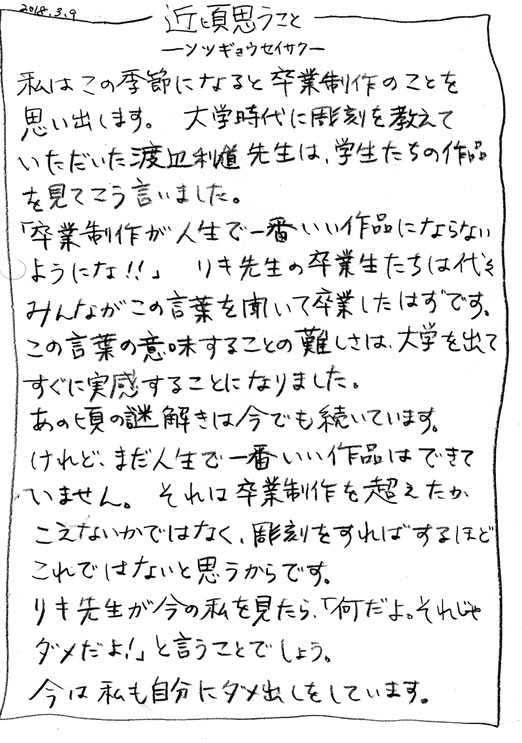 2018.3.9
近頃思うこと
―ソツギョウセイサク―
私はこの季節になると卒業制作のことを
思い出します。 大学時代に彫刻を教えて
いただいた渡辺利道先生は、学生たちの作品
を見てこう言いました。
「卒業制作が人生で一番いい作品にならない
ようにな!!」 リキ先生の卒業生たちは代々
みんながこの言葉を聞いて卒業したはずです。
この言葉の意味することの難しさは、大学を出て
すぐに実感することになりました。
あの頃の謎解きは今でも続いています。
けれど、まだ人生で一番いい作品はできて
いません。 それは卒業制作を超えたか
こえないかではなく、彫刻をすればするほど
これではないと思うからです。
リキ先生が今の私を見たら、「何だよ。それじゃ
ダメだよ!」と言うことでしょう。
今は私も自分にダメ出しをしています。